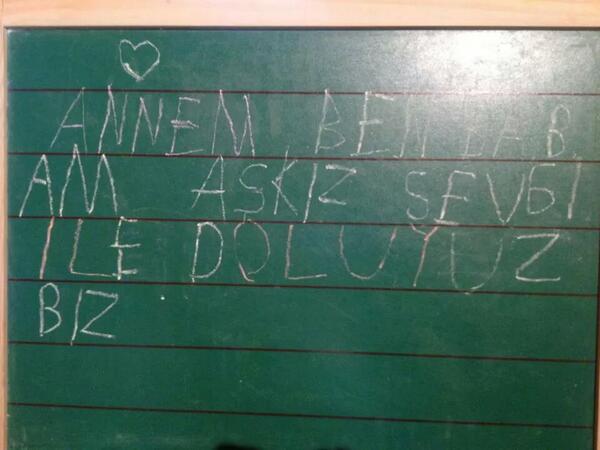 ANNEM BEN BAB
AM AŞKIZ SEVGİ
İLE DOLUYUZ
BİZ